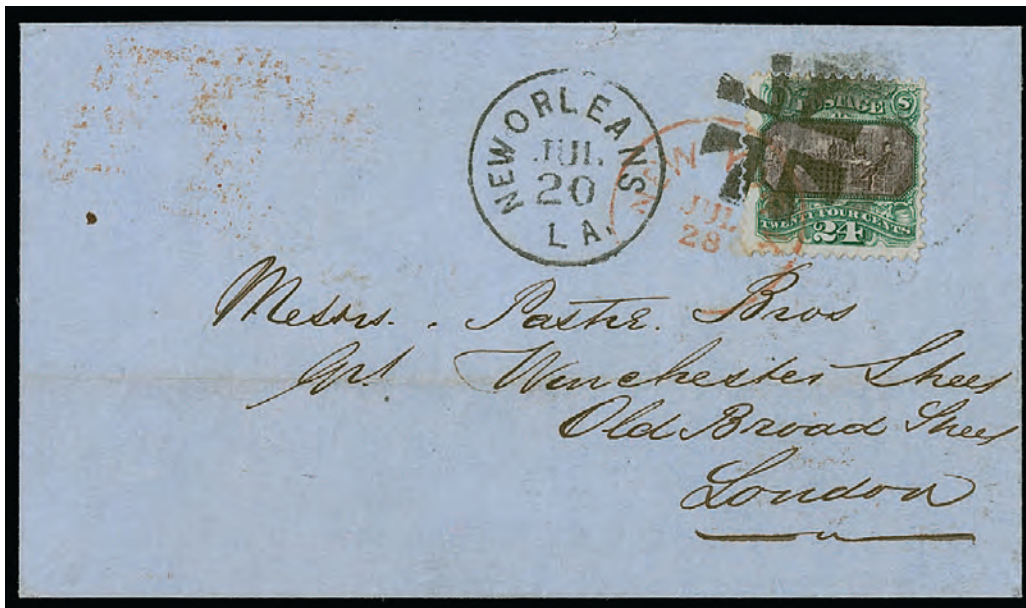 NEW ORLEANS
JUL.
20
LA.
NEW
JUL
28
POSTAGE
U S
TWENTY FOUR CENTS
24
Messrs. Pastré. Bros
Gr<sup>t</sup> Winchester Street
Old Broad Street
London